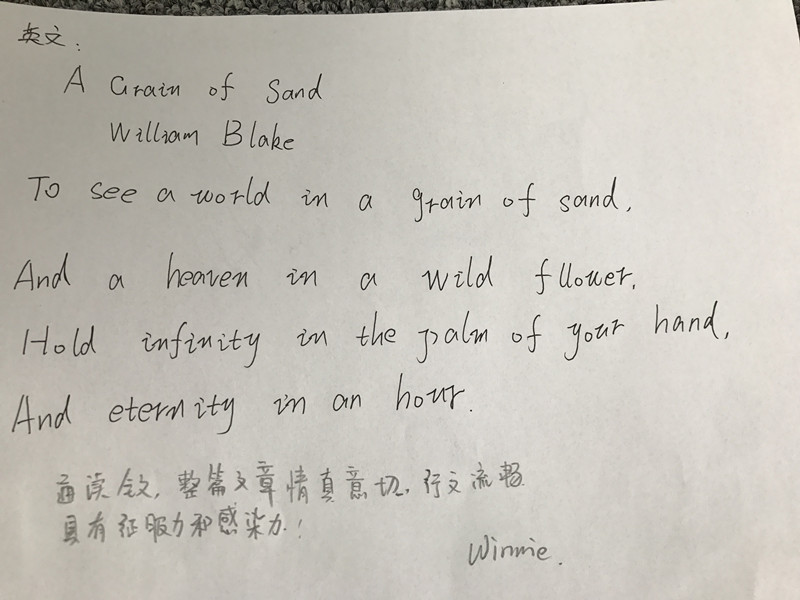 英文:
A Grain of Sand
William Blake
To see a world in a grain of sand,
And a heaven in a wild fllower.
Hold infinity in the palm of your hand,
And eternity in an hour.
通读全文,整篇文章情真意切,行文流畅
具有征服力和感染力!
Winnie.